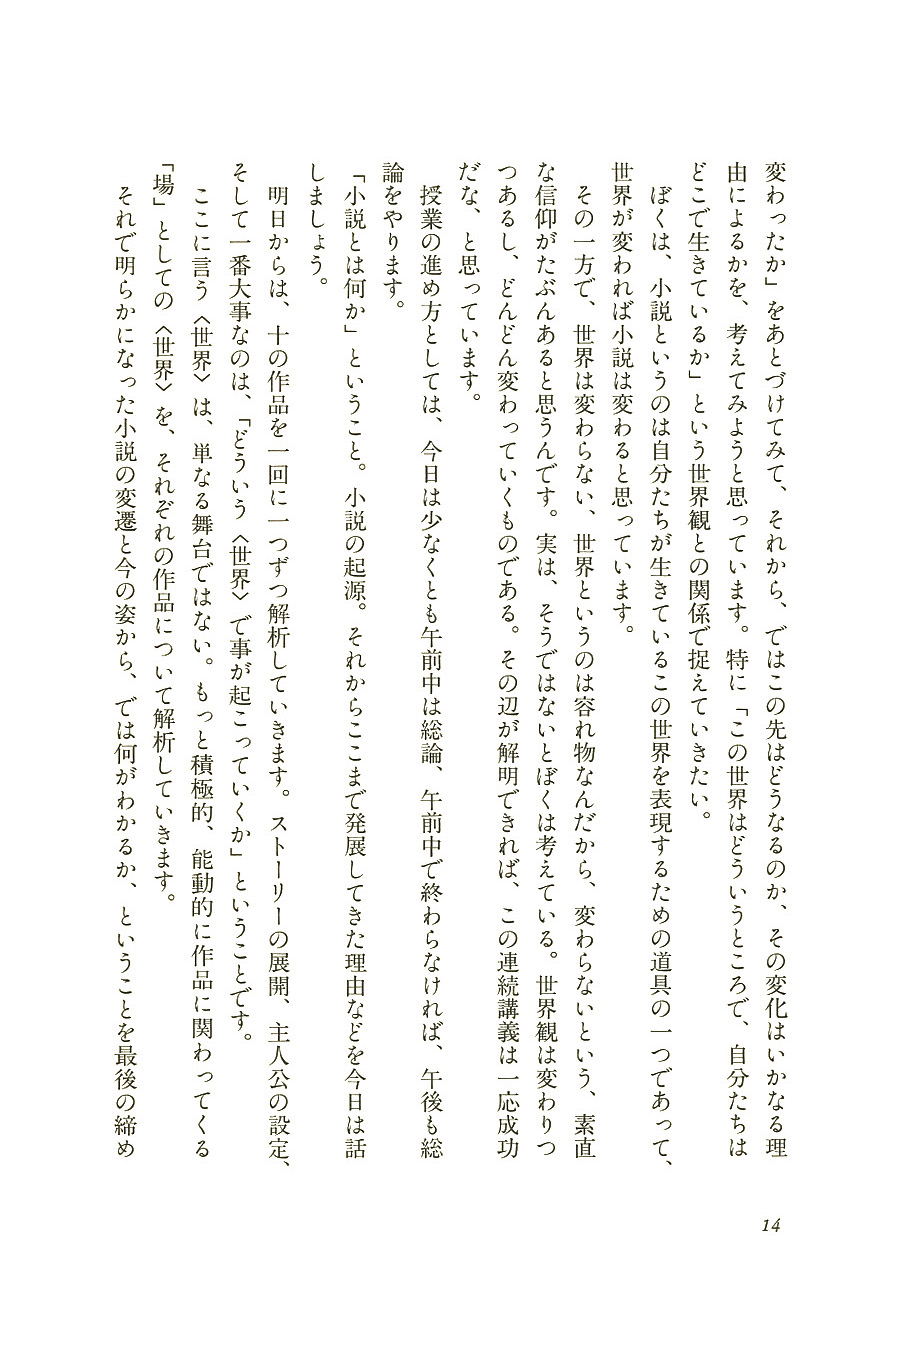 変わったか」をあとづけてみて、それから、ではこの先はどうなるのか、その変化はいかなる理
由によるかを、考えてみようと思っています。特に「この世界はどういうところで、自分たちは
どこで生きているか」という世界観との関係で捉えていきたい。
ぼくは、小説というのは自分たちが生きているこの世界を表現するための道具の一つであって、
世界が変われば小説は変わると思っています。
その一方で、世界は変わらない、世界というのは容れ物なんだから、変わらないという、素直
な信仰がたぶんあると思うんです。実は、そうではないとぼくは考えている。世界観は変わりつ
つあるし、どんどん変わっていくものである。その辺が解明できれば、この連続講義は一応成功
だな、と思っています。
授業の進め方としては、今日は少なくとも午前中は総論、午前中で終わらなければ、午後も総
論をやります。
「小説とは何か」ということ。小説の起源。それからここまで発展してきた理由などを今日は話
しましょう。
明日からは、十の作品を一回に一つずつ解析していきます。ストーリーの展開、主人公の設定、
そして一番大事なのは、「どういう〈世界〉で事が起こっていくか」ということです。
ここに言う〈世界〉は、単なる舞台ではない。もっと積極的、能動的に作品に関わってくる
「場」としての〈世界〉を、それぞれの作品について解析していきます。
それで明らかになった小説の変遷と今の姿から、では何がわかるか、ということを最後の締め
14